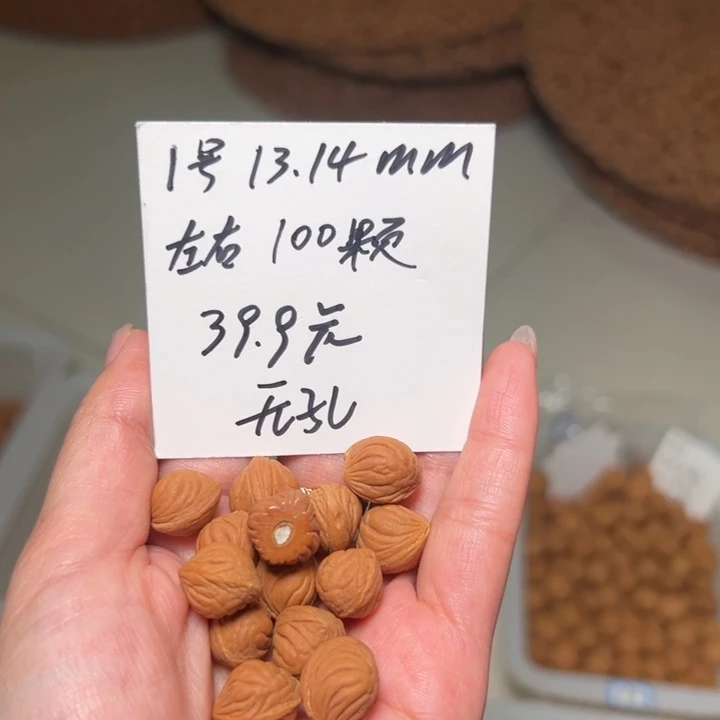 1号 13.14mm
左右 100颗
39.9元
无孔